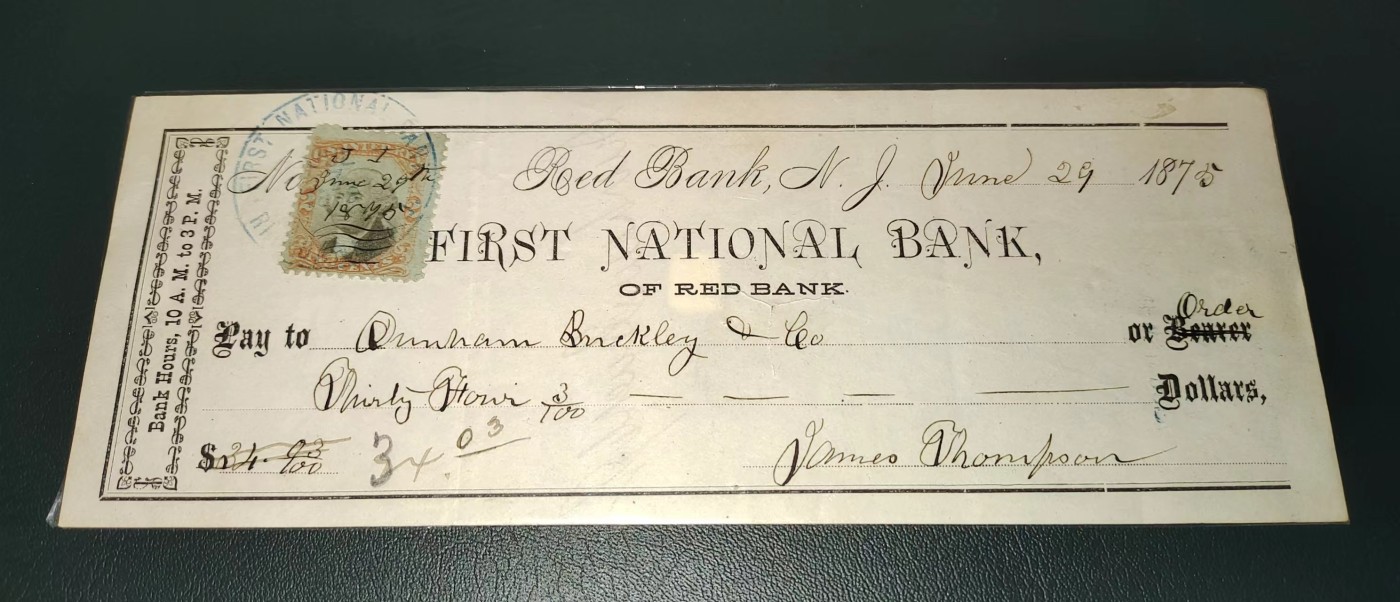 FIRST NATIONAL BANK
No
J T
June 29th
1875
Red Bank, N. J. June 29 1875
FIRST NATIONAL BANK,
OF RED BANK.
Bank Hours, 10 A. M. to 3 P. M.
Pay to Dunham Buckley & Co or Bearer Order
Thirty Four 3/100 — — — — Dollars,
$34. 03/100 34.03 James Thompson